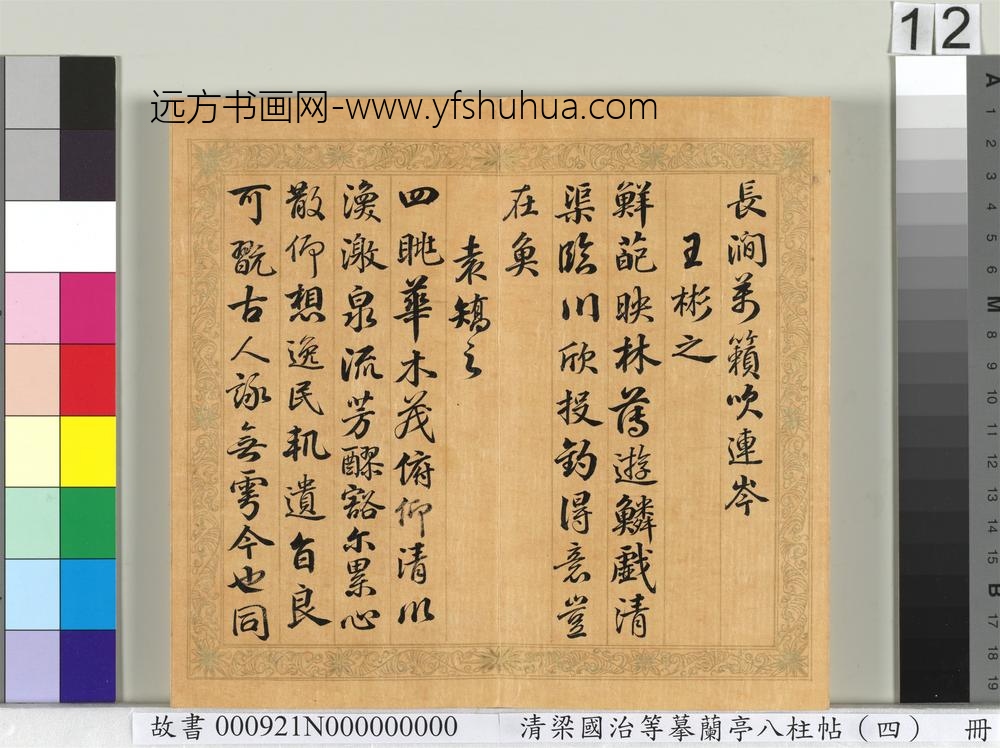 12
远方书画网-www.yfshuhua.com
長澗萬籟吹連岑
王彬之
鮮葩映林薄遊鱗戲清
渠臨川欣投釣得意豈
在魚
袁矯之
四眺華木茂俯仰清川
渙激泉流芳醪豁尒累心
散仰想逸民軌遺音良
可翫古人詠無雩今也同
A
1
2
3
4
5
6
M
8
9
10
11
12
13
14
15
B
17
18
19
故書 000921N000000000 清梁國治等摹蘭亭八柱帖（四） 冊